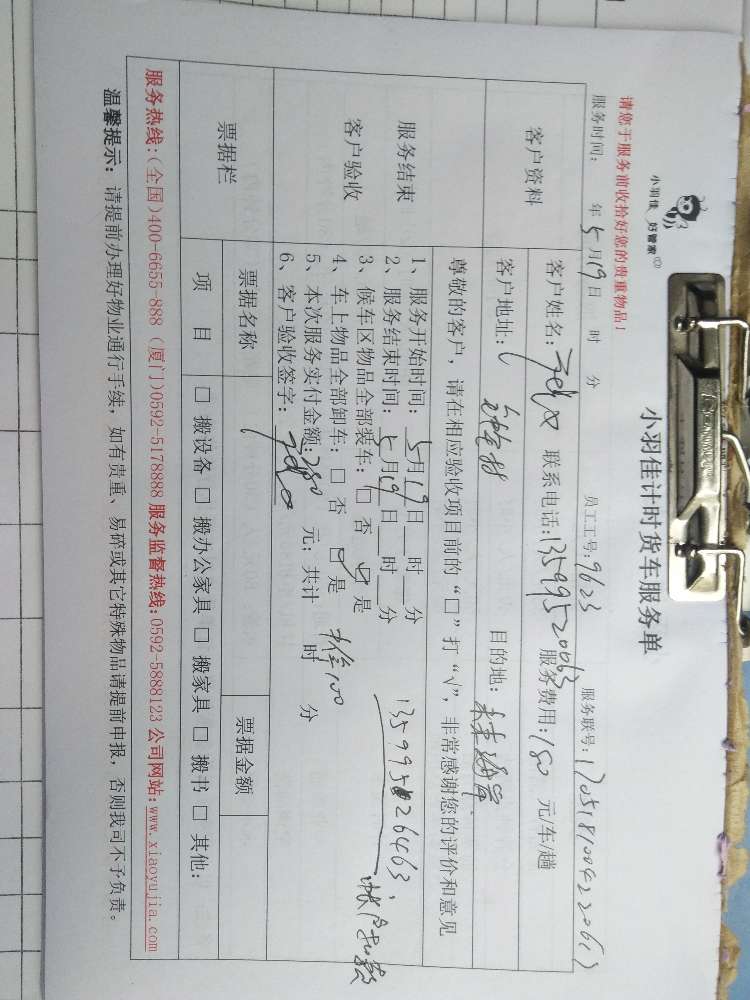 小羽佳 好管家
小羽佳计时货车服务单
请您于服务前收拾好您的贵重物品!
服务时间: 年5月19日 时 分 员工工号:9623 服务联号:
客户资料
客户姓名: 联系电话:13599520063 服务费用:180 元/车/趟
客户地址: 目的地:
服务结束
客户验收
尊敬的客户,请在相应验收项目前的“□”打“√”,非常感谢您的评价和意见
1、服务开始时间:5月19日__时__分
2、服务结束时间:5月19日__时__分
3、候车区物品全部装车:□ 否 ☑ 是
4、车上物品全部卸车:□ 否 ☑ 是
5、本次服务实付金额:280 元;共计 时 分
6、客户验收签字:
票据栏
票据名称 票据金额
项 目 □ 搬设备 □ 搬办公家具 □ 搬家具 □ 搬书 □ 其他:
服务热线:(全国)400-6655-888 (厦门)0592-5178888 服务监督热线:0592-5888123 公司网站:www.xiaoyujia.com
温馨提示: 请提前办理好物业通行手续,如有贵重、易碎或其它特殊物品请提前申报,否则我司不予负责。